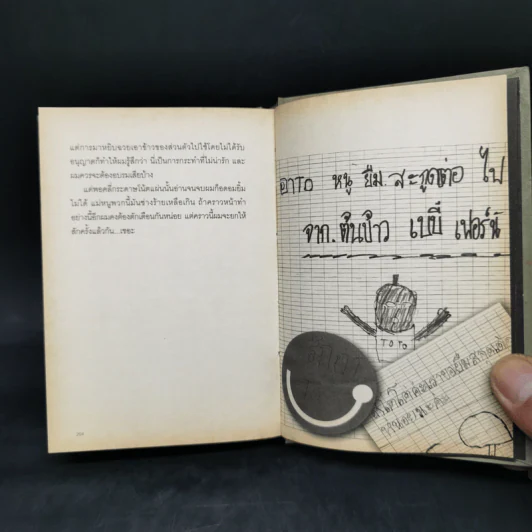 แต่การมาหยิบฉวยเอาข้าวของส่วนตัวไปใช้โดยไม่ได้รับ
อนุญาตก็ทำให้ผมรู้สึกว่า นี่เป็นการกระทำที่ไม่น่ารัก และ
ผมควรจะต้องอบรมเสียบ้าง
แต่พอคลี่กระดาษโน้ตแผ่นนั้นอ่านจนจบผมก็อดอมยิ้ม
ไม่ได้ แม่หนูพวกนี้มันช่างร้ายเหลือเกิน ถ้าคราวหน้าทำ
อย่างนี้อีกผมคงต้องตักเตือนกันหน่อย แต่คราวนี้ผมจะยกให้
สักครั้งแล้วกัน...เชอะ
อาTO หนู ยืม. สะกูตเตอ ไป
จาก. ต้นข้าว เบบี๋ เฟอร์นี่
TOTO